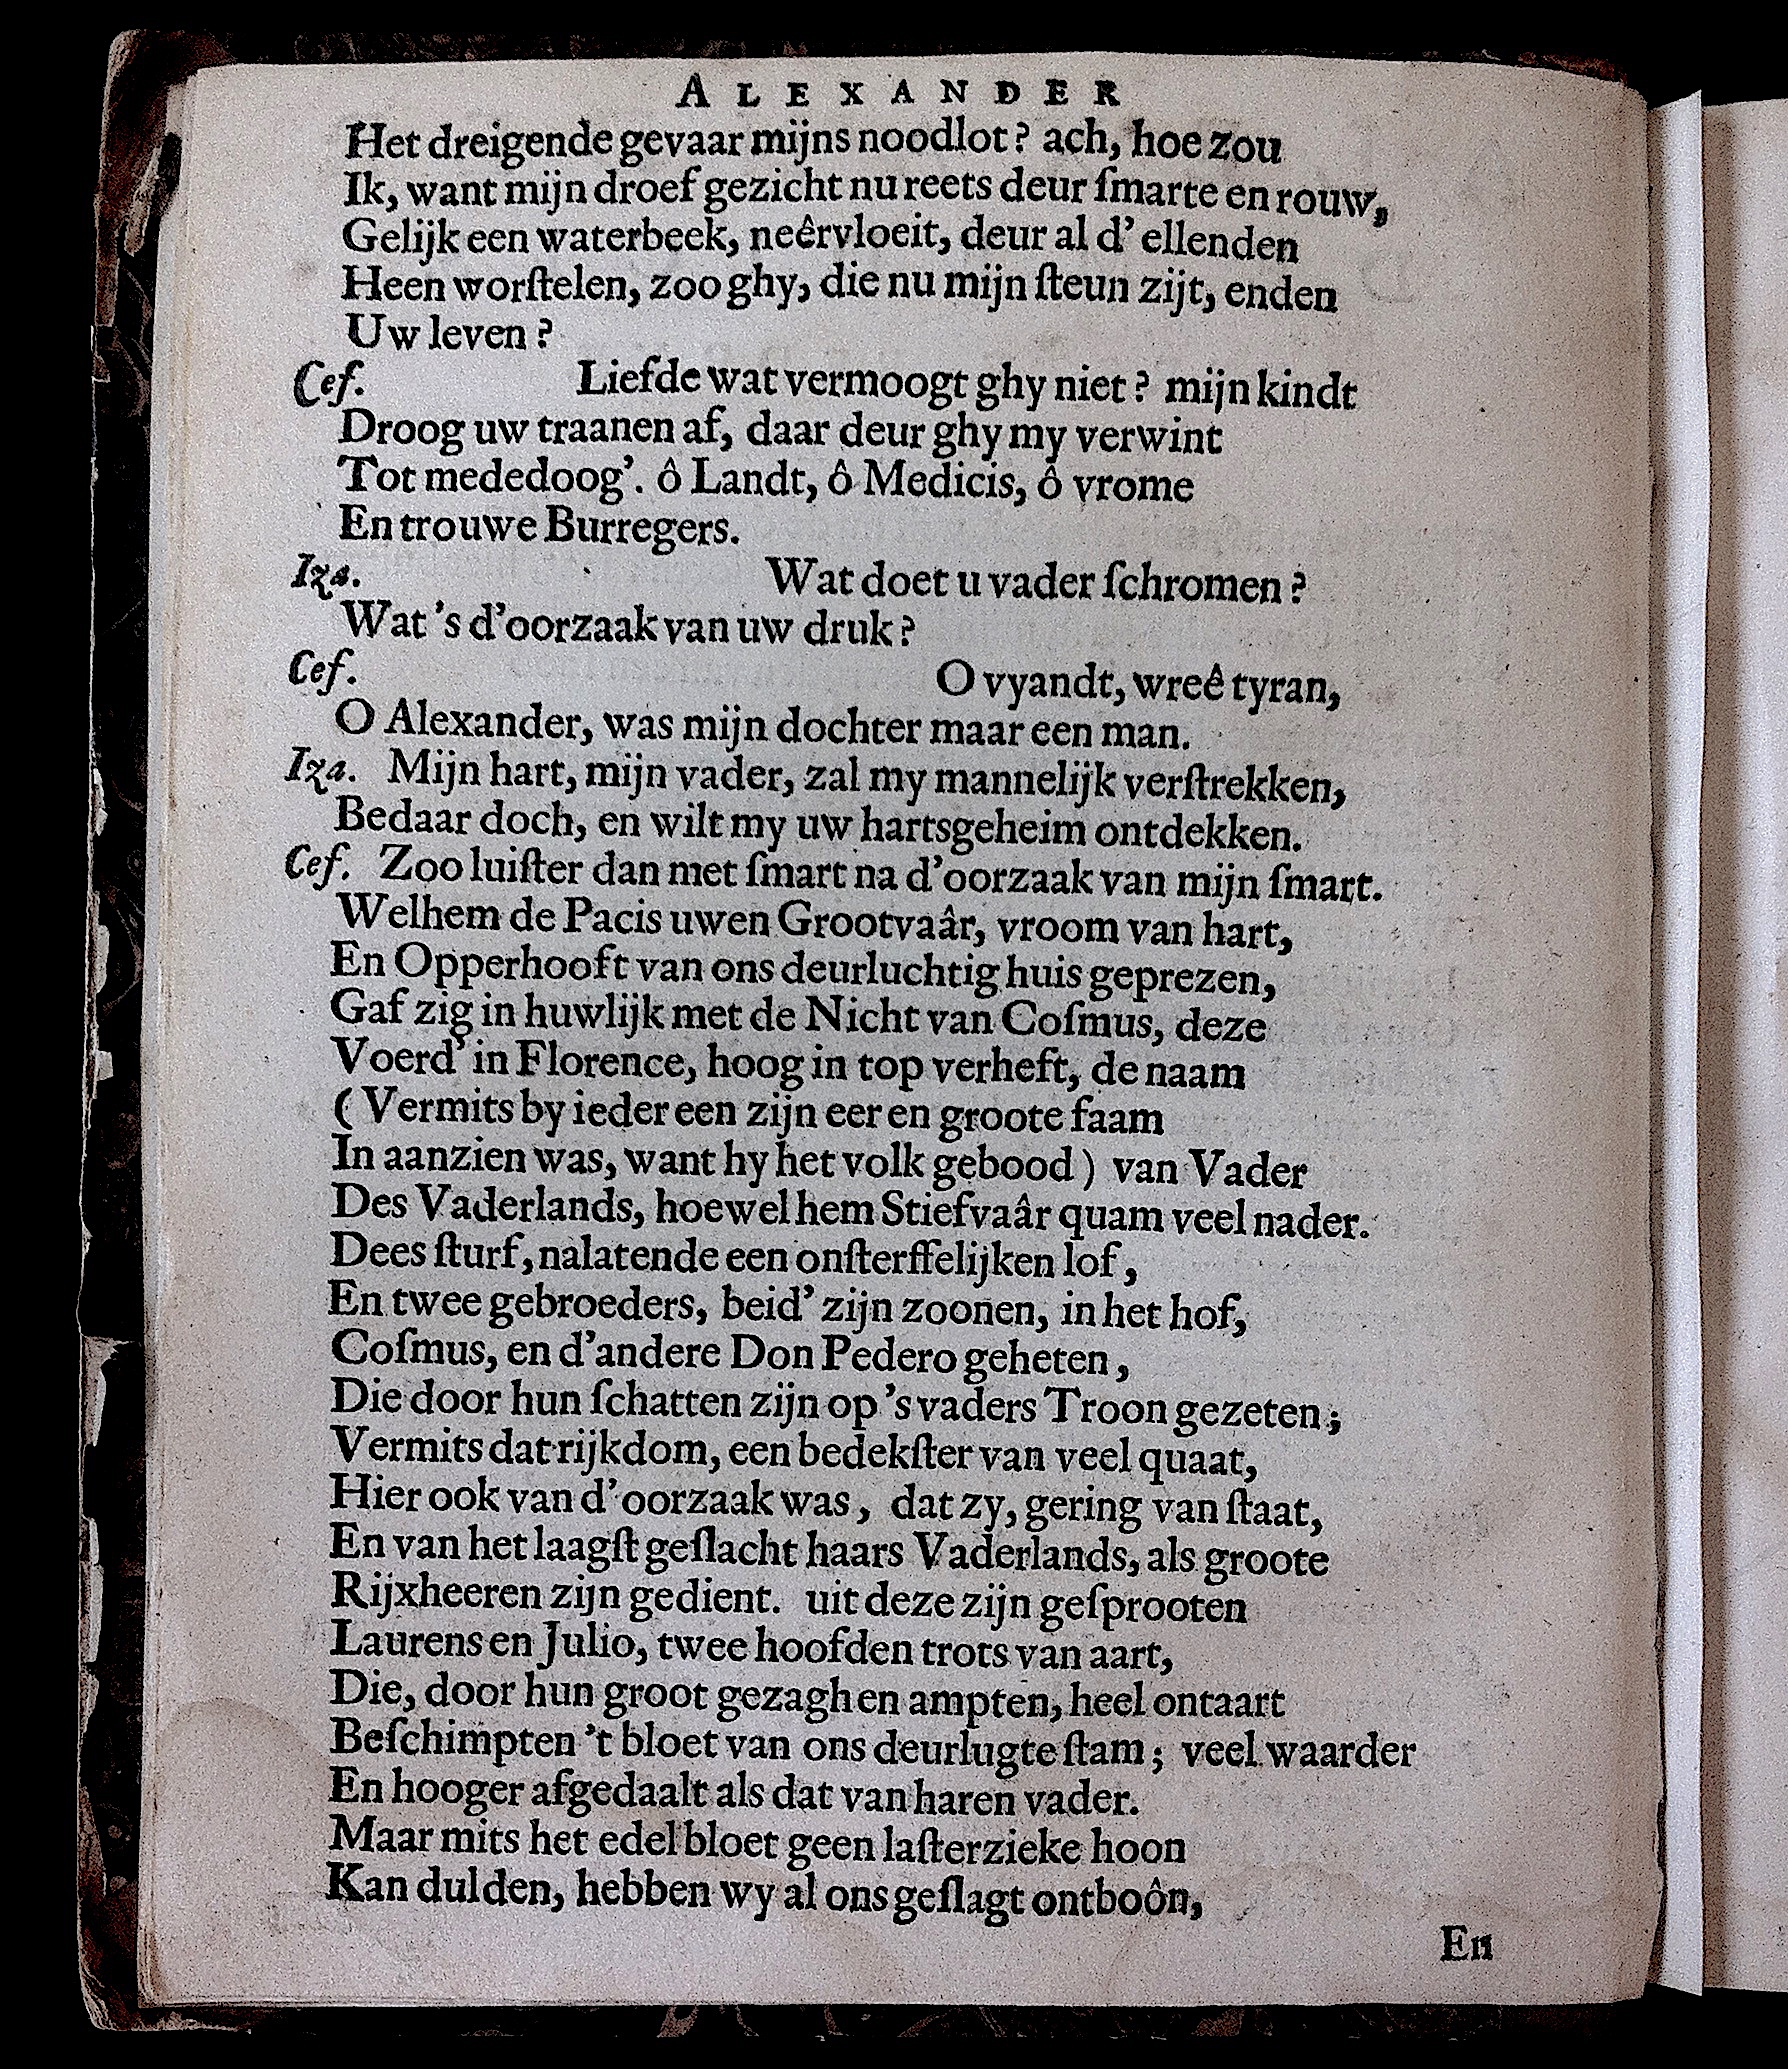 ALEXANDER
Het dreigende gevaar mijns noodlot? ach, hoe zou
Ik, want mijn droef gezicht nu reets deur ſmarte en rouw,
Gelijk een waterbeek, neêrvloeit, deur al d' ellenden
Heen worſtelen, zoo ghy, die nu mijn ſteun zijt, enden
Uw leven?
Ceſ. Liefde wat vermoogt ghy niet? mijn kindt
Droog uw traanen af, daar deur ghy my verwint
Tot mededoog'. ô Landt, ô Medicis, ô vrome
En trouwe Burregers.
Iza. Wat doet u vader ſchromen?
Wat 's d'oorzaak van uw druk?
Ceſ. O vyandt, wreê tyran,
O Alexander, was mijn dochter maar een man.
Iza. Mijn hart, mijn vader, zal my mannelijk verſtrekken,
Bedaar doch, en wilt my uw hartsgeheim ontdekken.
Ceſ. Zoo luiſter dan met ſmart na d'oorzaak van mijn ſmart.
Welhem de Pacis uwen Grootvaâr, vroom van hart,
En Opperhooft van ons deurluchtig huis geprezen,
Gaf zig in huwlijk met de Nicht van Coſmus, deze
Voerd' in Florence, hoog in top verheft, de naam
(Vermits by ieder een zijn eer en groote faam
In aanzien was, want hy het volk gebood) van Vader
Des Vaderlands, hoewel hem Stiefvaâr quam veel nader.
Dees ſturf, nalatende een onſterffelijken lof,
En twee gebroeders, beid' zijn zoonen, in het hof,
Coſmus, en d'andere Don Pedero geheten,
Die door hun ſchatten zijn op 's vaders Troon gezeten;
Vermits dat rijkdom, een bedekſter van veel quaat,
Hier ook van d' oorzaak was, dat zy, gering van ſtaat,
En van het laagſt geſlacht haars Vaderlands, als groote
Rijxheeren zijn gedient. uit deze zijn geſprooten
Laurens en Julio, twee hoofden trots van aart,
Die, door hun groot gezagh en ampten, heel ontaart
Beſchimpten 't bloet van ons deurlugte ſtam; veel waarder
En hooger afgedaalt als dat van haren vader.
Maar mits het edel bloet geen laſterzieke hoon
Kan dulden, hebben wy al ons geſlagt ontboôn,
En